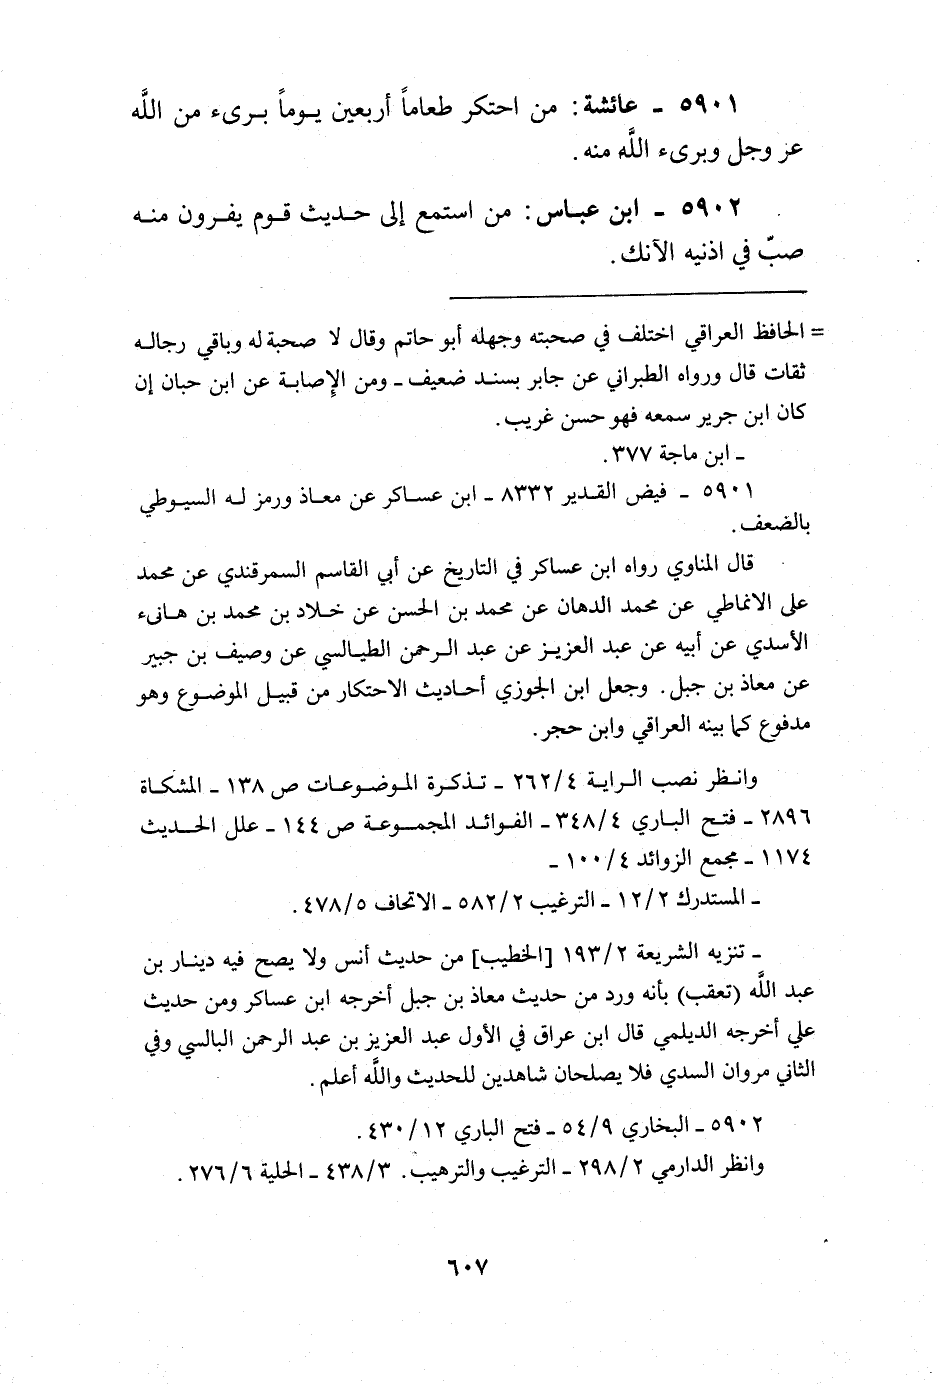 ٥٩٠١ ـ عائشة: من احتكر طعاماً أربعين يـوماً بـرىء من اللَّه
عز وجل وبرىء اللَّه منه.
٥٩٠٢ ـ ابن عبـاس: من استمع إلى حـديث قـوم يفـرون منـه
صبّ في اذنيه الآنك.
= الحافظ العراقي اختلف في صحبته وجهله أبو حاتم وقال لا صحبة له وباقي رجالـه
ثقات قال ورواه الطبراني عن جابر بسنـد ضعيف ـ ومن الإصابـة عن ابن حبان إن
كان ابن جرير سمعه فهو حسن غريب.
ـ ابن ماجة ٣٧٧.
٥٩٠١ ـ فيض القـدير ٨٣٣٢ ـ ابن عسـاكر عن معـاذ ورمز لـه السيـوطي
بالضعف.
قال المناوي رواه ابن عساكر في التاريخ عن أبي القاسم السمرقندي عن محمد
على الانماطي عن محمد الدهان عن محمد بن الحسن عن خـلاد بن محمد بن هـانىء
الأسدي عن أبيه عن عبد العزيـز عن عبد الـرحمن الطيـالسي عن وصيف بن جبير
عن معاذ بن جبل. وجعل ابن الجوزي أحـاديث الاحتكار من قبيـل الموضـوع وهو
مدفوع كما بينه العراقي وابن حجر.
وانـظر نصب الـرايـة ٢٦٢/٤ ـ تـذكـرة المـوضـوعـات ص ١٣٨ ـ المشكـاة
٢٨٩٦ ـ فتـح البـاري ٣٤٨/٤ ـ الفـوائـد المجمـوعـة ص ١٤٤ ـ علل الحـديث
١١٧٤ ـ مجمع الزوائد ١٠٠/٤ ـ
ـ المستدرك ١٢/٢ ـ الترغيب ٥٨٢/٢ ـ الاتحاف ٤٧٨/٥.
ـ تنزيه الشريعة ١٩٣/٢ [الخطيب] من حديث أنس ولا يصح فيه دينـار بن
عبد اللَّه (تعقب) بأنه ورد من حديث معاذ بن جبل أخرجه ابن عساكر ومن حديث
علي أخرجه الديلمي قال ابن عراق في الأول عبد العزيز بن عبد الرحمن البالسي وفي
الثاني مروان السدي فلا يصلحان شاهدين للحديث واللَّه أعلم.
٥٩٠٢ ـ البخاري ٥٤/٩ ـ فتح الباري ٤٣٠/١٢.
وانظر الدارمي ٢٩٨/٢ ـ الترغيب والترهيب. ٤٣٨/٣ ـ الحلية ٢٧٦/٦.
٦٠٧